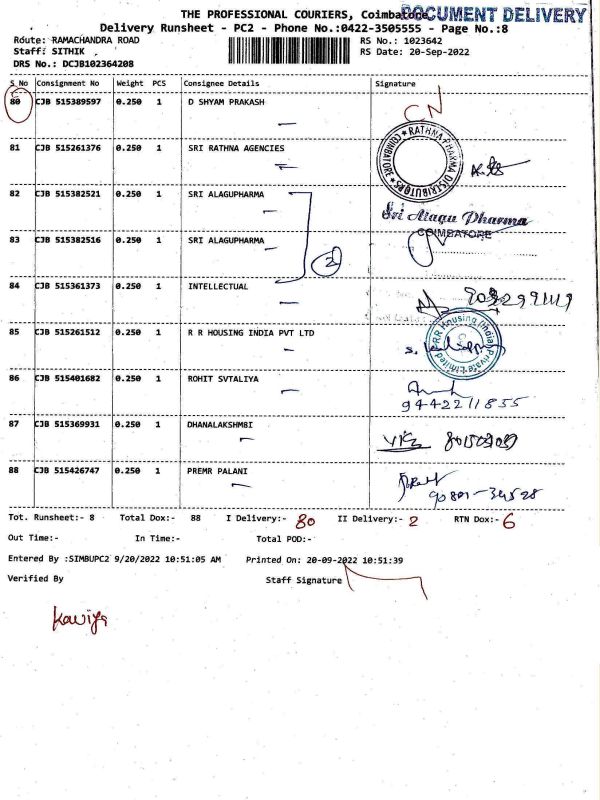 THE PROFESSIONAL COURIERS, Coimbatore
DOCUMENT DELIVERY
Delivery Runsheet - PC2 - Phone No.:0422-3505555 - Page No.:8
Route: RAMACHANDRA ROAD
RS No.: 1023642
Staff: SITHIK
RS Date: 20-Sep-2022
DRS No.: DCJB102364208
S.No Consignment No Weight PCS Consignee Details Signature
80 CJB 515389597 0.250 1 D SHYAM PRAKASH CN
81 CJB 515261376 0.250 1 SRI RATHNA AGENCIES
RATHNA PHARMA DISTRIBUTORS COIMBATORE
82 CJB 515382521 0.250 1 SRI ALAGUPHARMA
Sri Alagu Pharma
COIMBATORE
83 CJB 515382516 0.250 1 SRI ALAGUPHARMA
2
84 CJB 515361373 0.250 1 INTELLECTUAL
85 CJB 515261512 0.250 1 R R HOUSING INDIA PVT LTD
R.R Housing (India) Private Limited
86 CJB 515401682 0.250 1 ROHIT SVTALIYA
9442211855
87 CJB 515369931 0.250 1 DHANALAKSHMBI
88 CJB 515426747 0.250 1 PREMR PALANI
90801-34528
Tot. Runsheet:- 8 Total Dox:- 88 I Delivery:- 80 II Delivery:- 2 RTN Dox:- 6
Out Time:- In Time:- Total POD:-
Entered By :SIMBUPC2 9/20/2022 10:51:05 AM Printed On: 20-09-2022 10:51:39
Verified By Staff Signature
Kaviya